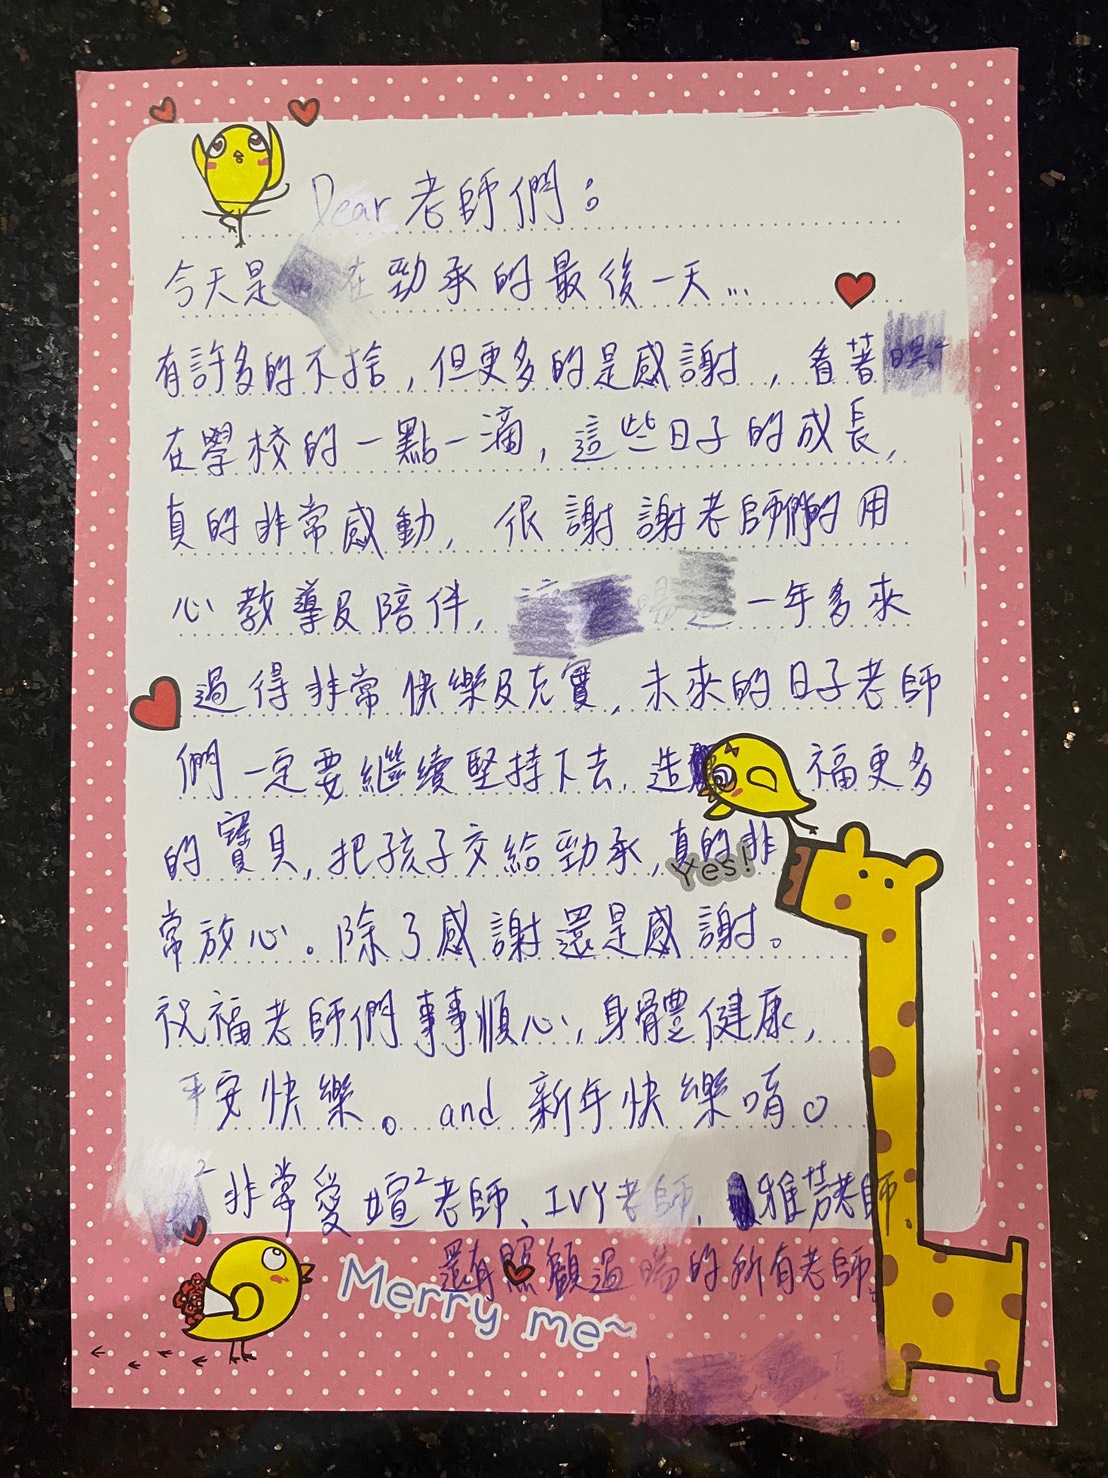 Dear 老師們：
今天是 在 勁承的最後一天...
有許多的不捨，但更多的是感謝，看著
在學校的一點一滴，這些日子的成長，
真的非常感動，很謝謝老師們的用
心教導及陪伴， 一年多來
過得非常快樂及充實，未來的日子老師
們一定要繼續堅持下去，造 福更多
的寶貝，把孩子交給勁承，真的非
Yes!
常放心。除了感謝還是感謝。
祝福老師們事事順心，身體健康，
平安快樂。and 新年快樂唷。
非常愛 媗²老師、IVY老師、雅芸老師
還有照顧過 的所有老師。
Merry me~